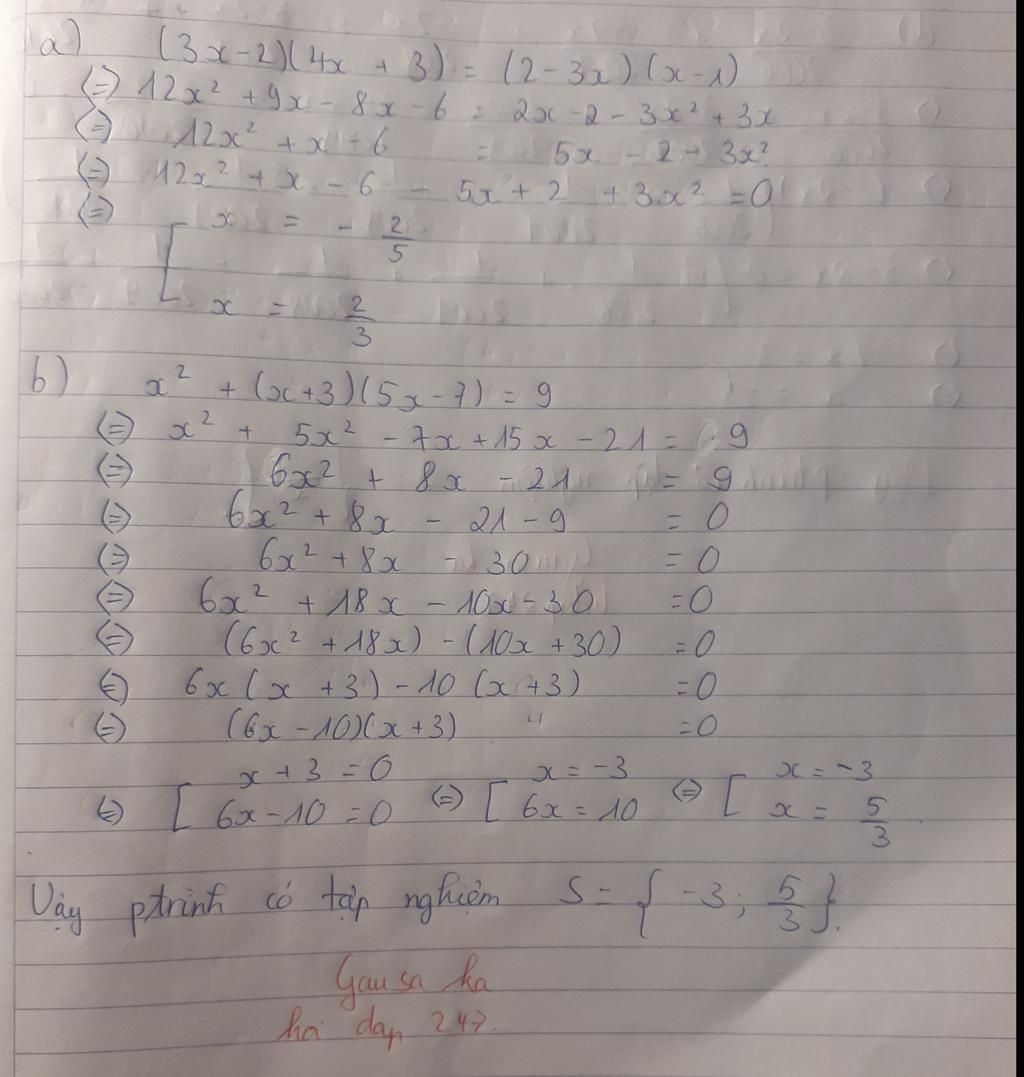 a) (3x-2)(4x + 3) = (2-3x)(x-1)
(=) 12x² + 9x - 8x - 6 = 2x - 2 - 3x² + 3x
(=) 12x² + x - 6 = 5x - 2 - 3x²
(=) 12x² + x - 6 - 5x + 2 + 3x² = 0
(=) [ x = - 2/5
x = 2/3
b) x² + (x+3)(5x-7) = 9
(=) x² + 5x² - 7x + 15x - 21 = 9
(=) 6x² + 8x - 21 = 9
(=) 6x² + 8x - 21 - 9 = 0
(=) 6x² + 8x - 30 = 0
(=) 6x² + 18x - 10x - 30 = 0
(=) (6x² + 18x) - (10x + 30) = 0
(=) 6x (x + 3) - 10 (x + 3) = 0
(=) (6x - 10)(x + 3) = 0
(=) [ x + 3 = 0 (=) [ x = -3 (=) [ x = -3
6x - 10 = 0 6x = 10 x = 5/3
Vậy ptrình có tập nghiệm S = { -3 ; 5/3 }.
Gau sa ka
hoi dap 247.